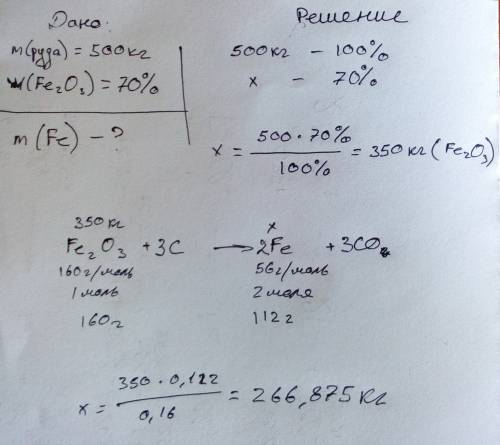 Дано:
m(руда) = 500кг
w(Fe₂O₃) = 70%
m(Fe) – ?
Решение
500кг – 100%
x – 70%
x = 500 · 70% / 100% = 350кг (Fe₂O₃)
350кг x
Fe₂O₃ + 3C → 2Fe + 3CO
160г/моль 56г/моль
1моль 2моля
160г 112г
x = 350 · 0,122 / 0,16 = 266,875кг